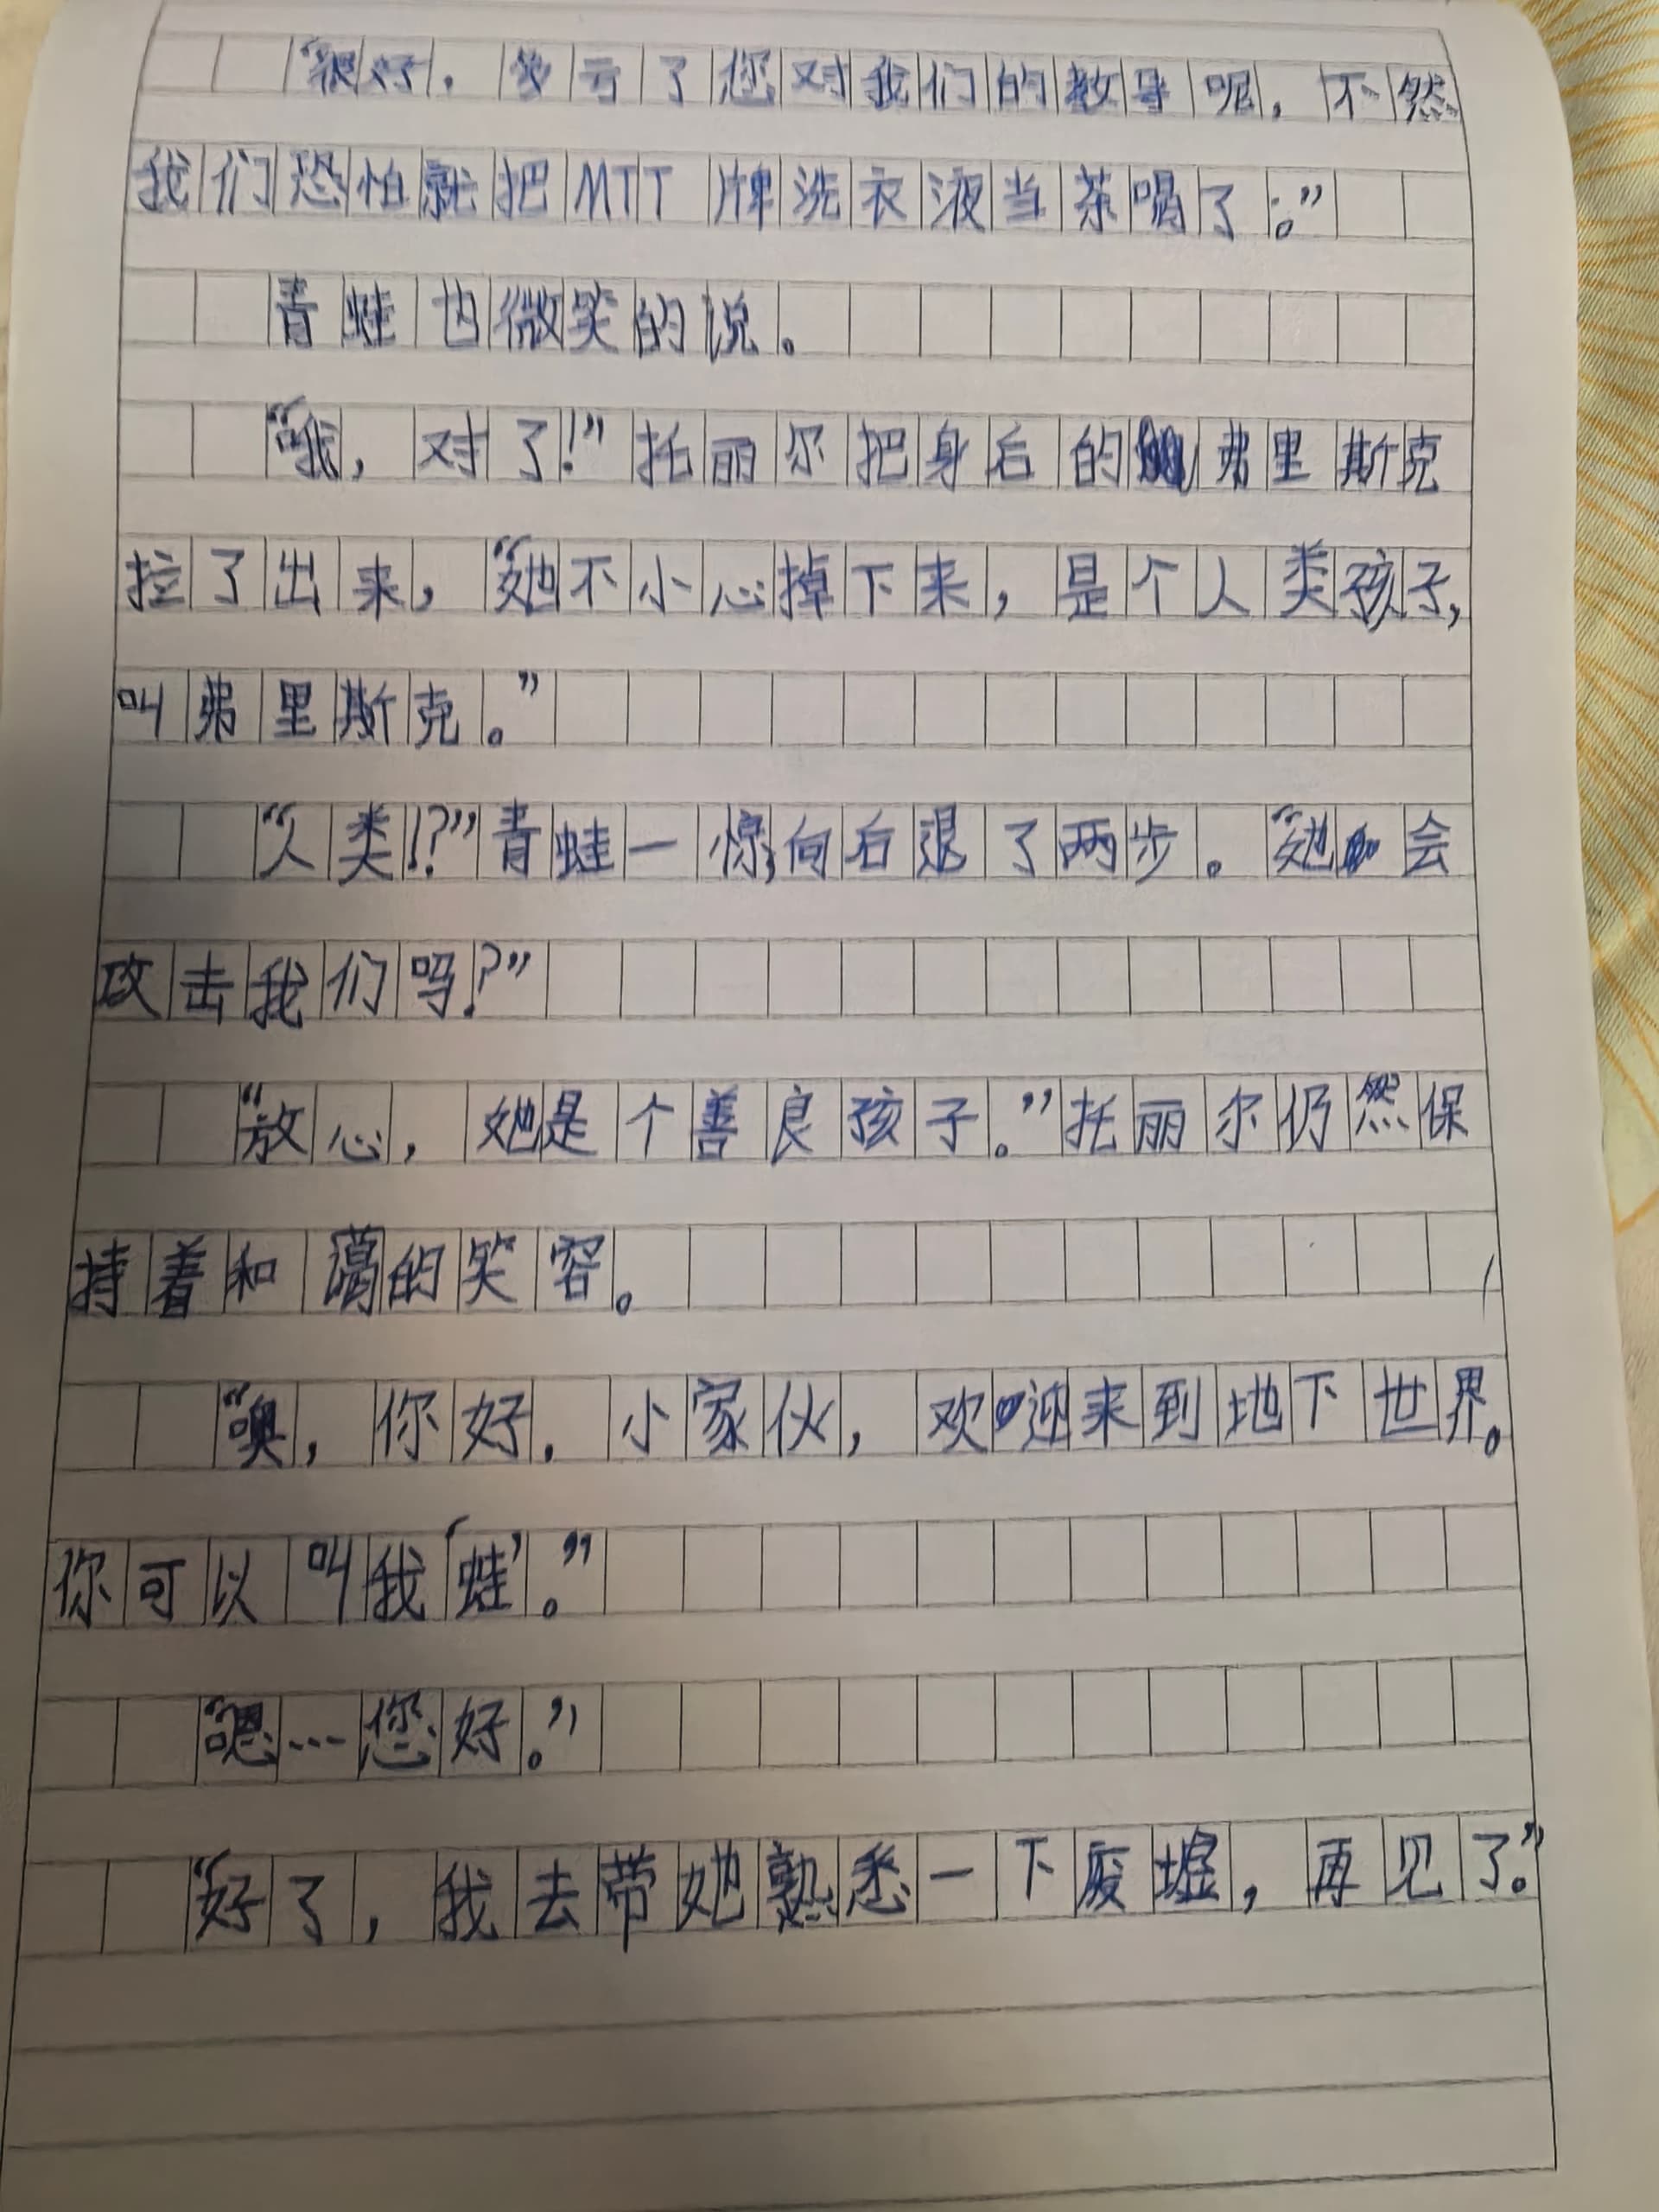 “很好，多亏了您对我们的教导呢，不然
我们恐怕就把MTT牌洗衣液当茶喝了。”
青蛙也微笑的说。
“哦，对了！”托丽尔把身后的弗里斯克
拉了出来，“她不小心掉下来，是个人类孩子，
叫弗里斯克。”
“人类！？”青蛙一惊，向后退了两步。“她会
攻击我们吗？”
“放心，她是个善良孩子。”托丽尔仍然保
持着和蔼的笑容。
“噢，你好，小家伙，欢迎来到地下世界。
你可以叫我‘蛙’。”
“嗯…您好。”
“好了，我去带她熟悉一下废墟，再见了。”